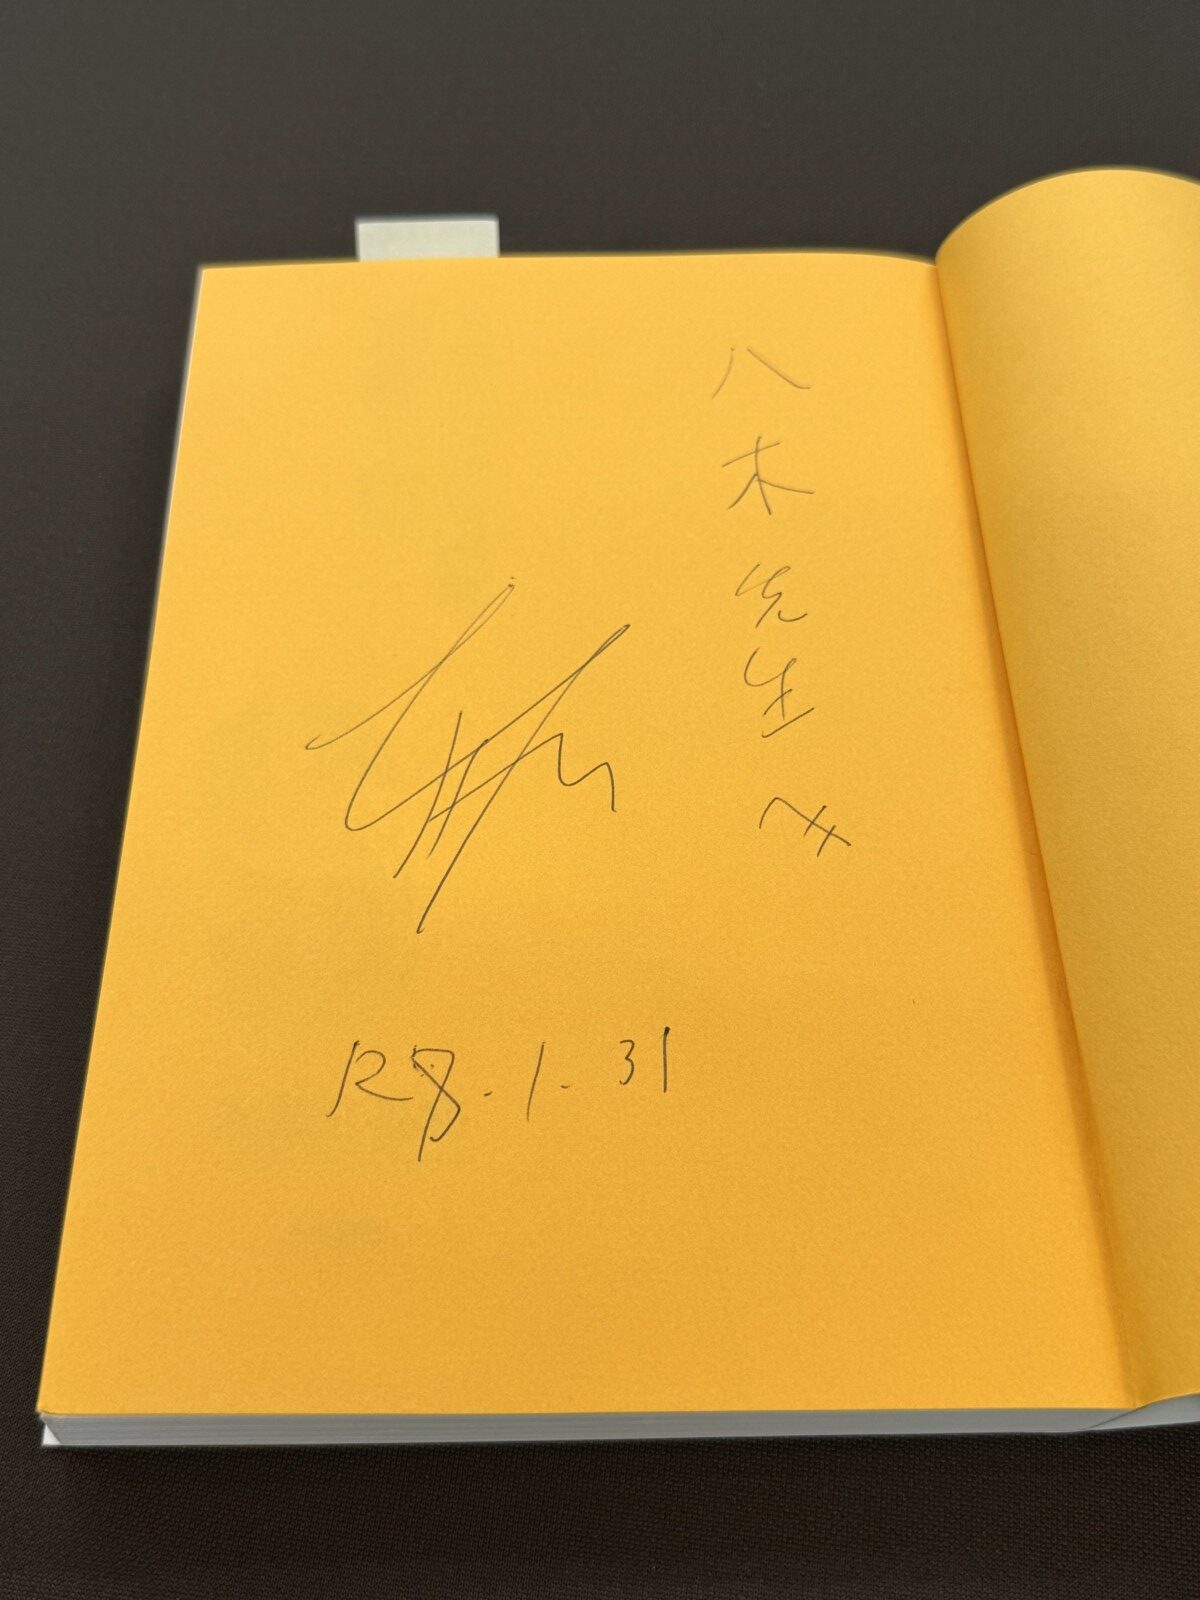 八木先生へ
R8.1.31